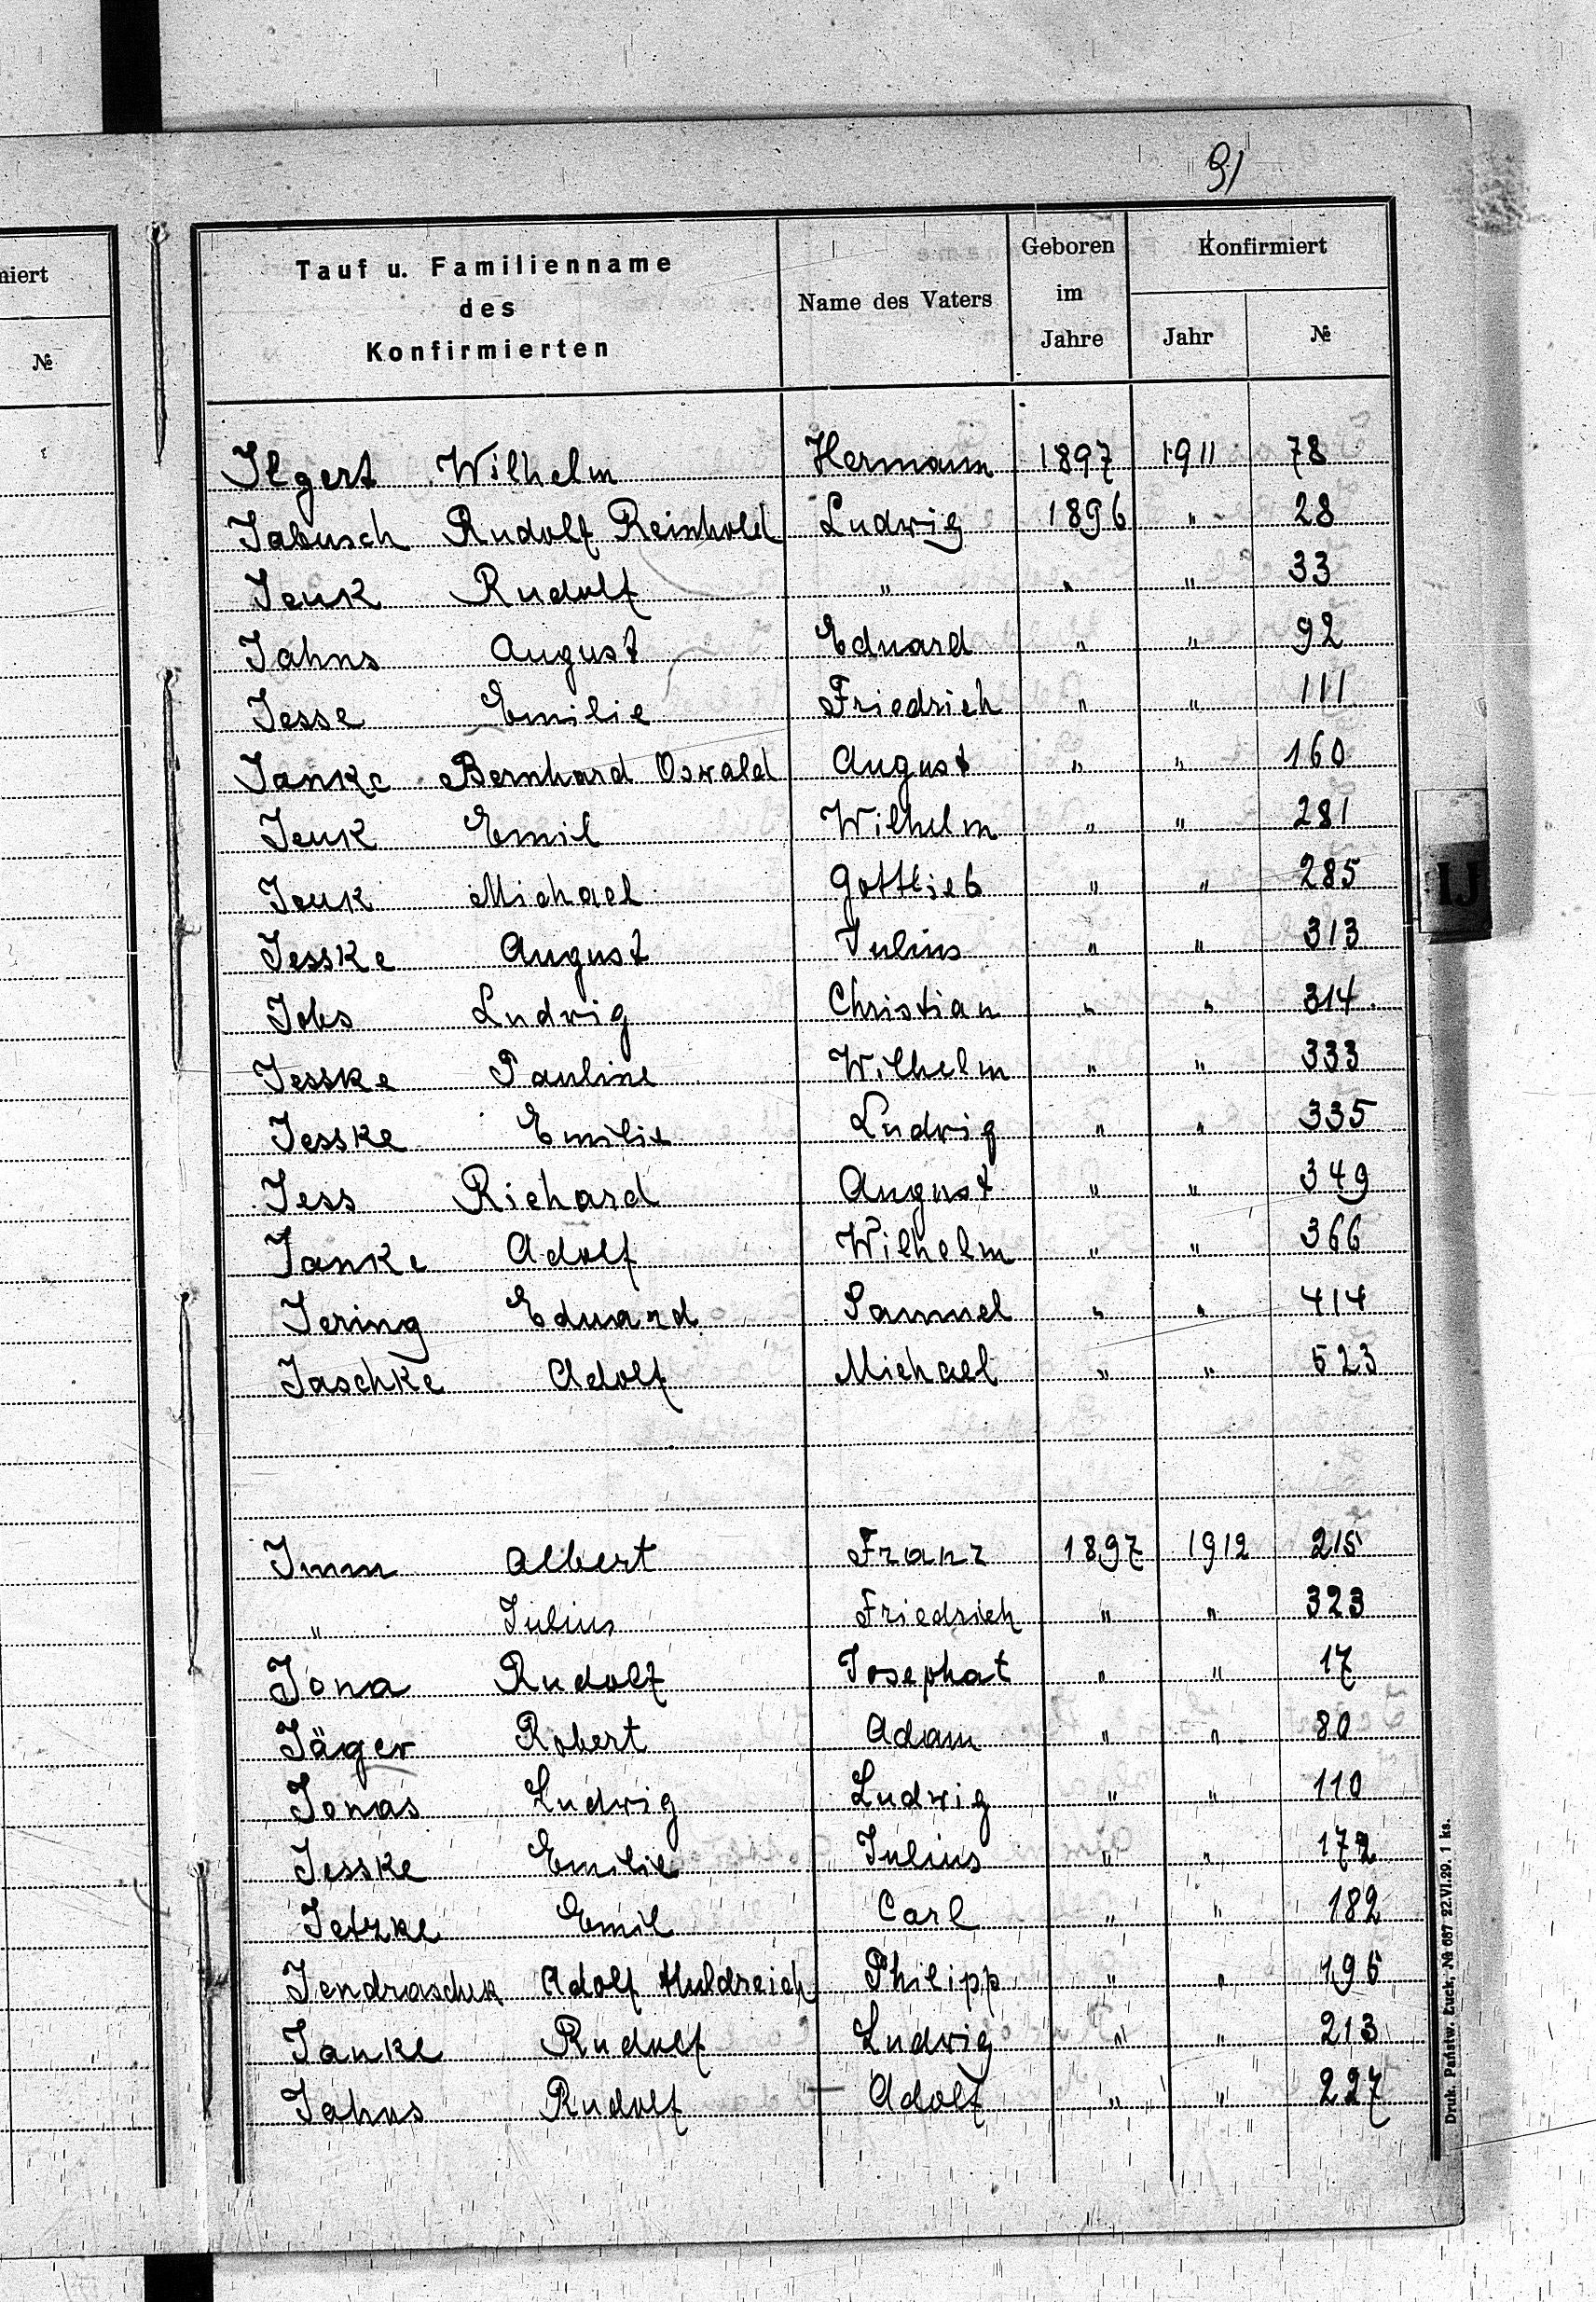 91
miert
№
Tauf u. Familienname
des
Konfirmierten
Name des Vaters
Geboren
im
Jahre
Konfirmiert
Jahr
№
Ilgert Wilhelm Hermann 1897 1911 78
Jabusch Rudolf Reinhold Ludwig 1896 " 28
Jeuk Rudolf " " " 33
Jahns August Eduard " " 92
Jesse Emilie Friedrich " " 111
Janke Bernhard Oswald August " " 160
Jeuk Emil Wilhelm " " 281
Jeuk Michael Gottlieb " " 285
Jesske August Julius " " 313
Jobs Ludwig Christian " " 314
Jesske Pauline Wilhelm " " 333
Jesske Emilie Ludwig " " 335
Jess Richard August " " 349
Janke Adolf Wilhelm " " 366
Jering Eduard Samuel " " 414
Jaschke Adolf Michael " " 523
Imm Albert Franz 1897 1912 215
" Julius Friedrich " " 323
Jona Rudolf Josephat " " 17
Jäger Robert Adam " " 80
Jonas Ludwig Ludwig " " 110
Jesske Emilie Julius " " 172
Jetzke Emil Carl " " 182
Jendraschek Adolf Huldreich Philipp " " 195
Janke Rudolf Ludwig " " 213
Jahns Rudolf Adolf " " 227
IJ
Druk. Państw. Łuck, № 687 22.VI.29. 1 ks.